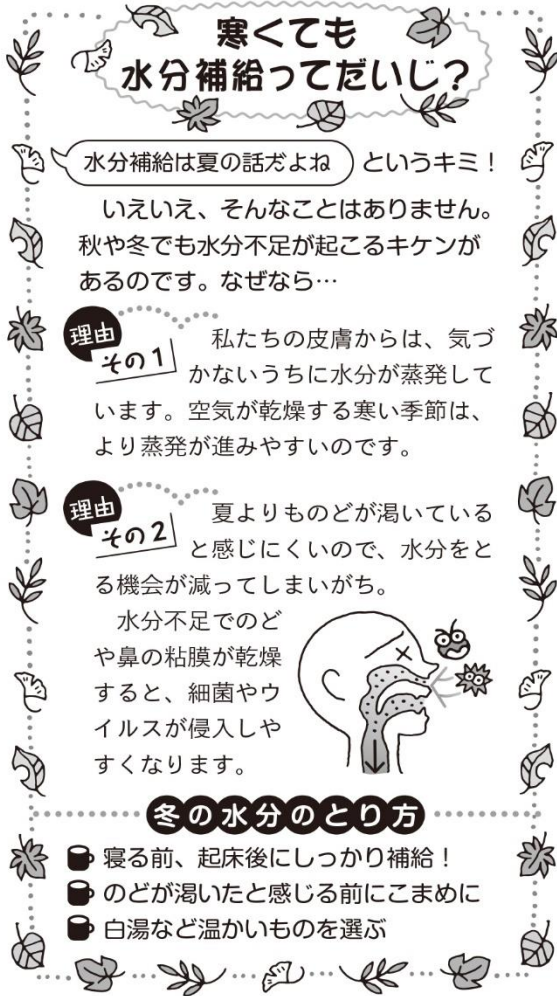 寒くても
水分補給ってだいじ？
水分補給は夏の話だよね というキミ！
いえいえ、そんなことはありません。
秋や冬でも水分不足が起こるキケンが
あるのです。なぜなら…
理由
その1
私たちの皮膚からは、気づ
かないうちに水分が蒸発して
います。空気が乾燥する寒い季節は、
より蒸発が進みやすいのです。
理由
その2
夏よりものどが渇いている
と感じにくいので、水分をと
る機会が減ってしまいがち。
水分不足でのど
や鼻の粘膜が乾燥
すると、細菌やウ
イルスが侵入しや
すくなります。
冬の水分のとり方
寝る前、起床後にしっかり補給！
のどが渇いたと感じる前にこまめに
白湯など温かいものを選ぶ